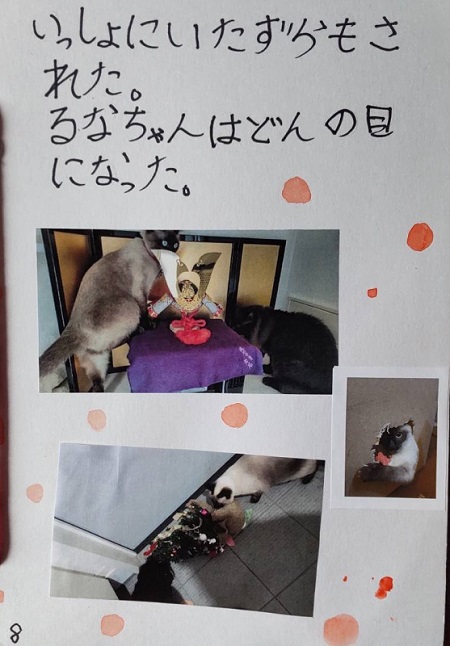 いっしょにいたずらもさ
れた。
るなちゃんはどんの目
になった。
8